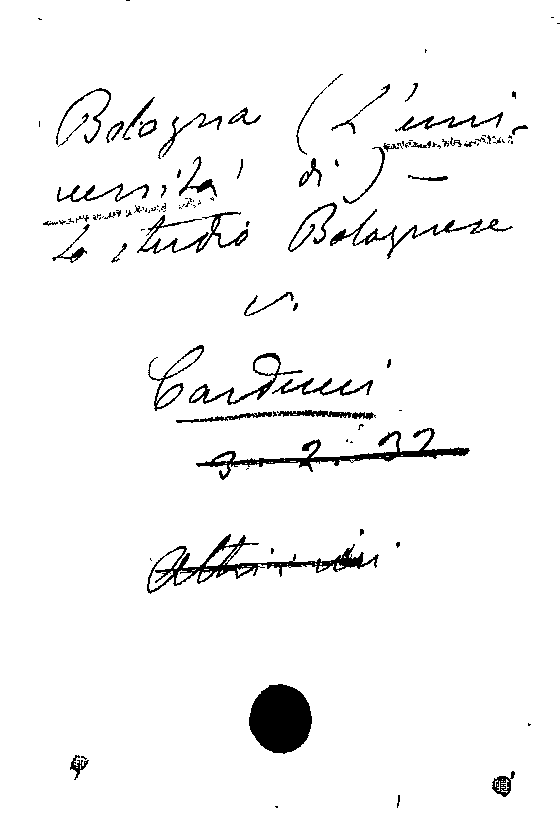 Bologna (L'uni-
versità di) —
Lo studio Bolognese
v.
Carducci
3. 2. 32
Altri